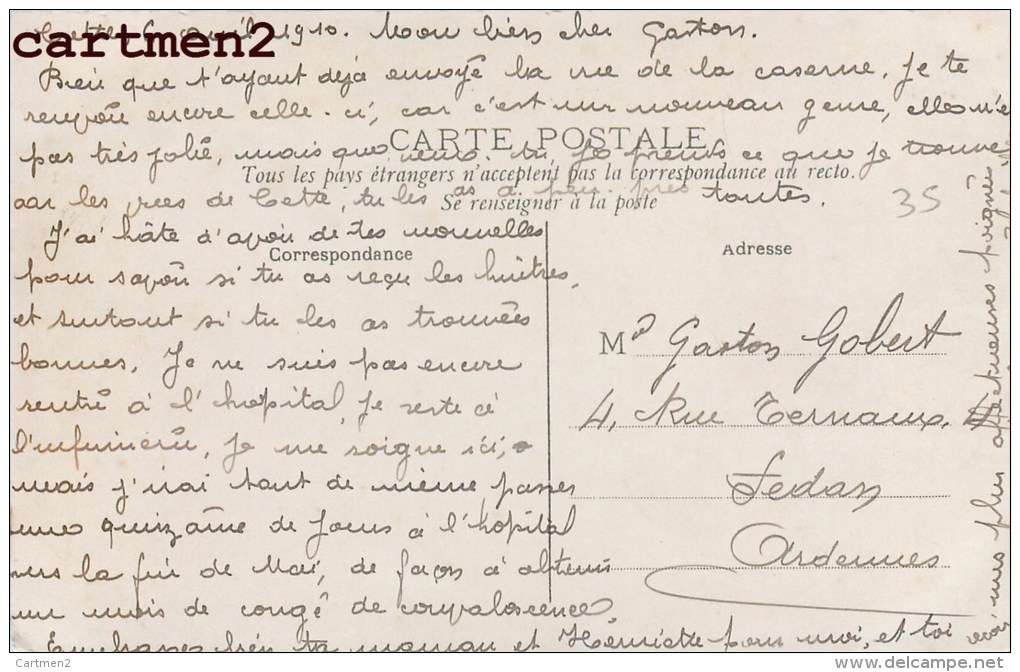 cartmen2
Cette 6 avril 1910. Mon bien cher Gaston.
Bien que t'ayant déjà envoyé la vue de la caserne, je te
renvoie encore celle-ci, car c'est un nouveau genre, elle n'e
pas très jolie, mais que veux-tu, je prends ce que je trouve,
CARTE POSTALE
Tous les pays étrangers n'acceptent pas la correspondance au recto.
car les vues de Cette, tu les as à peu près toutes.
Se renseigner à la poste
35
J'ai hâte d'avoir de tes nouvelles
Correspondance
pour savoir si tu as reçu les huîtres,
et surtout si tu les as trouvées
bonnes. Je ne suis pas encore
rentré à l'hopital, je reste à
l'infirmerie, je me soigne ici,
mais j'irai tout de même passer
une quinzaîne de jours à l'hopital
vers la fin de Mai, de façon à obtenir
un mois de congé de convalescence.
Embrasse bien ta maman et Henriette pour moi, et toi
Adresse
M Gaston Gobert
4, Rue Ternaux.
Sedan
Ardennes
mes plus affectueuses poignées
Cartmen2
http://www.delcampe.net